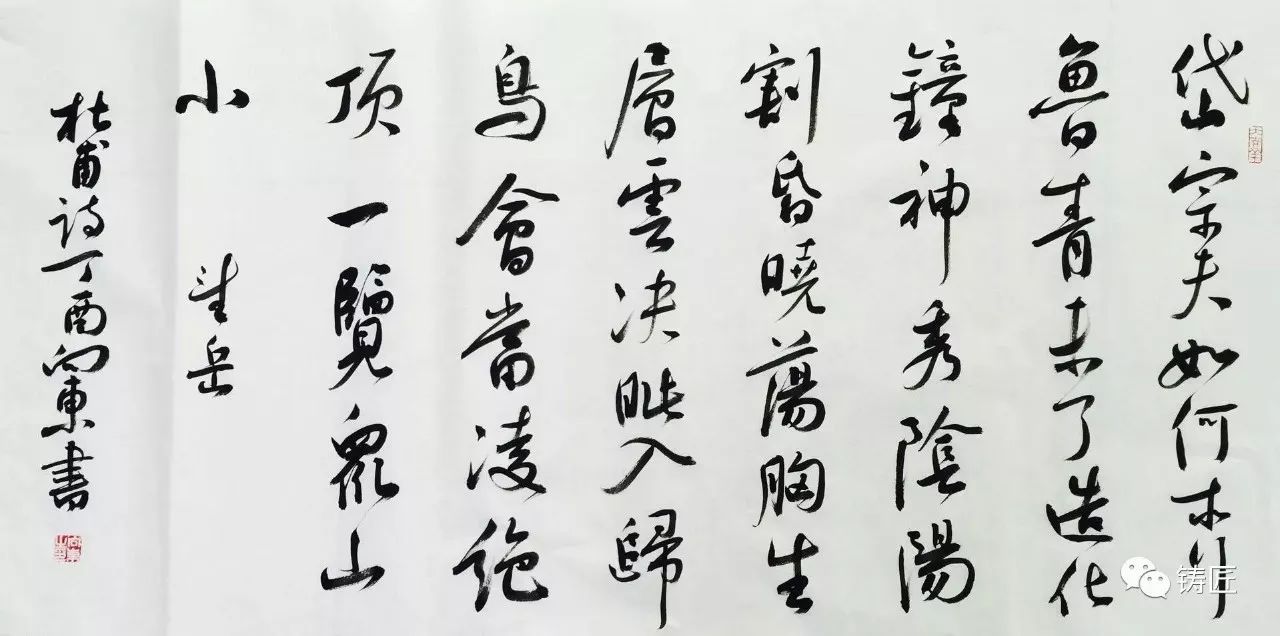 岱宗夫如何齊
魯青未了造化
鐘神秀陰陽
割昏曉蕩胸生
層雲决眦入歸
鳥會當凌絶
顶一覽眾山
小 望岳
杜甫诗丁酉向東書
铸匠